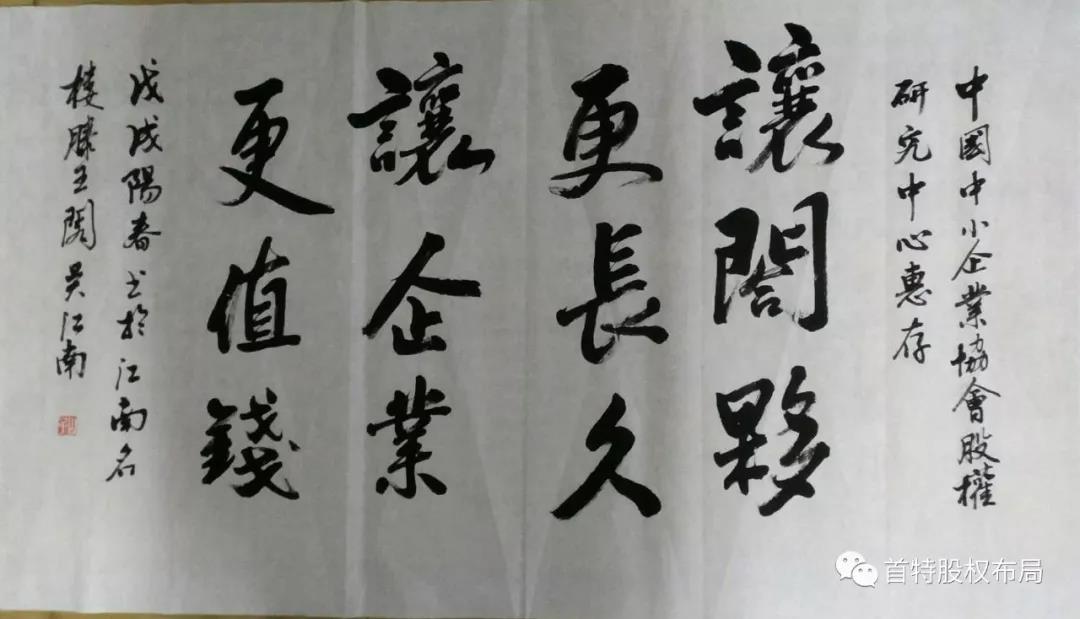 中國中小企業協會股權
研究中心惠存
讓閤夥
更長久
讓企業
更值錢
戊戌陽春书於江南名
樓滕王閣 吴江南
首特股权布局